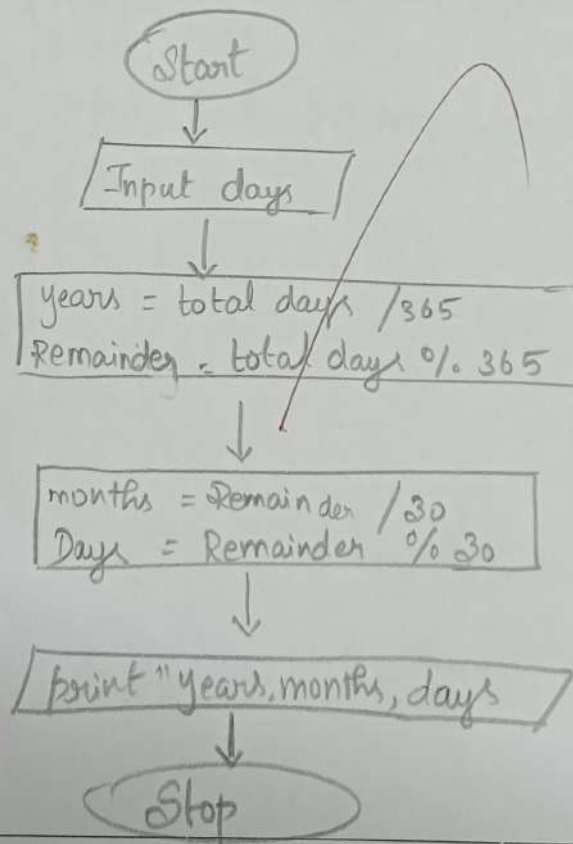 Start
Input days
years = total days /365
Remainder = total days % 365
months = Remainder /30
Days = Remainder % 30
print "years, months, days
Stop